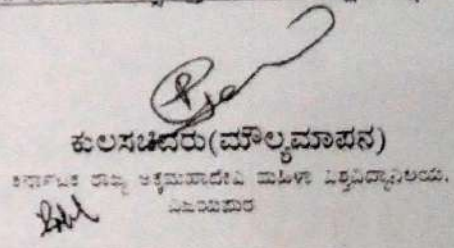 ಕುಲಸಚಿವರು(ಮೌಲ್ಯಮಾಪನ)
ಕರ್ನಾಟಕ ರಾಜ್ಯ ಅಕ್ಕಮಹಾದೇವಿ ಮಹಿಳಾ ವಿಶ್ವವಿದ್ಯಾನಿಲಯ,
ವಿಜಯಪುರ